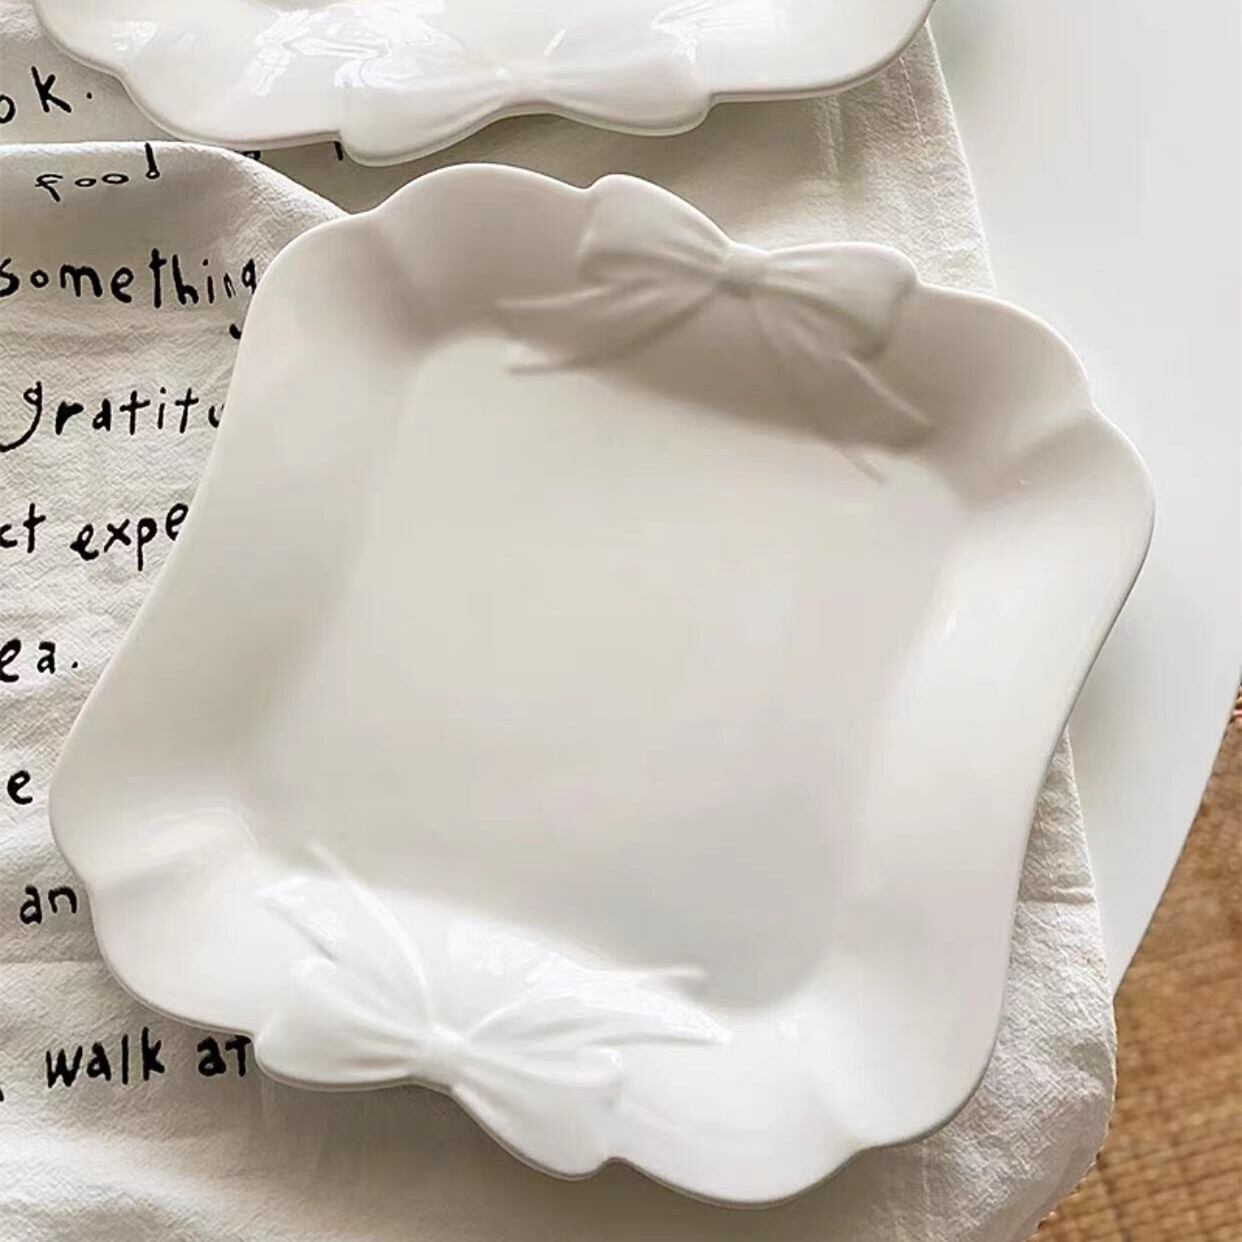 ok.
food
something
gratitu
ct expe
ea.
e
an
walk at